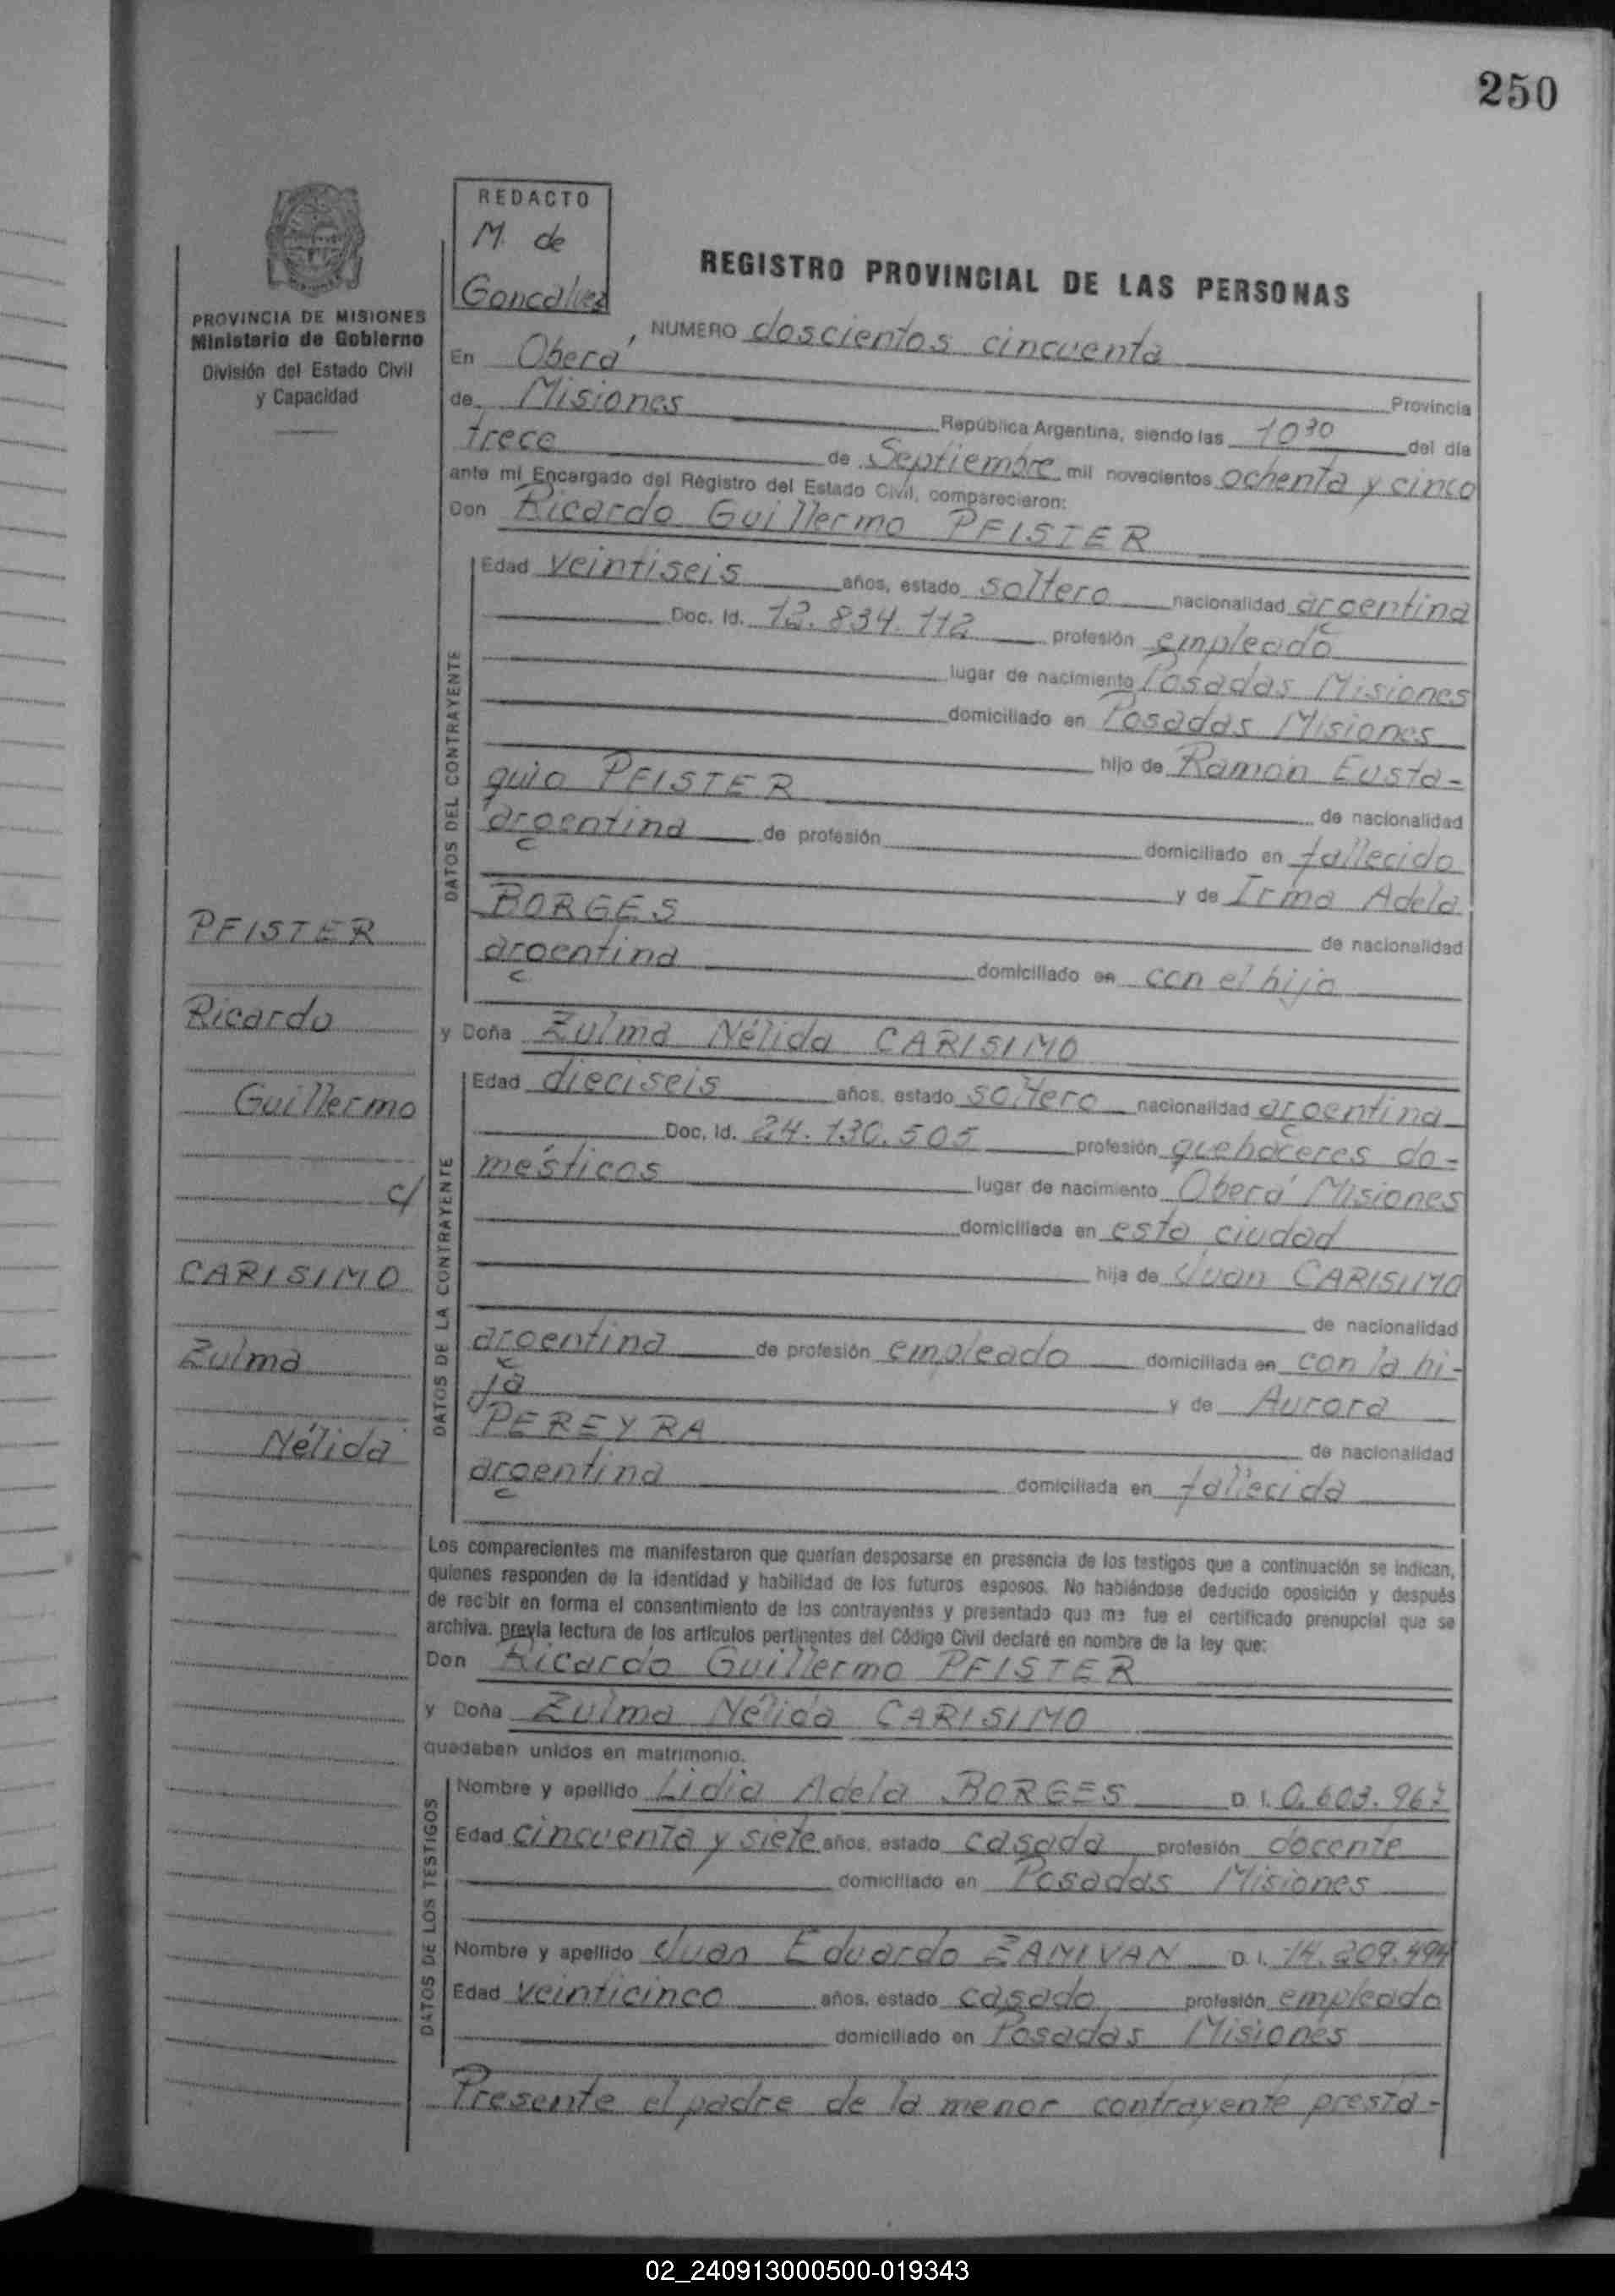 250
REDACTO
M. de
Goncalvez
PROVINCIA DE MISIONES
Ministerio de Gobierno
División del Estado Civil
y Capacidad
REGISTRO PROVINCIAL DE LAS PERSONAS
NUMERO doscientos cincuenta
En Oberá, Provincia
de Misiones República Argentina, siendo las 10 30 del día
trece de Septiembre mil novecientos ochenta y cinco
ante mí Encargado del Registro del Estado Civil, comparecieron:
Don Ricardo Guillermo PFISTER
DATOS DEL CONTRAYENTE
Edad veintiseis años, estado soltero nacionalidad argentina
Doc. Id. 12.834.112 profesión empleado
lugar de nacimiento Posadas Misiones
domiciliado en Posadas Misiones
hijo de Ramón Eusta-
quio PFISTER de nacionalidad
argentina de profesión domiciliado en fallecido
y de Irma Adela
BORGES de nacionalidad
argentina domiciliado en con el hijo
y Doña Zulma Nélida CARISIMO
DATOS DE LA CONTRAYENTE
Edad dieciseis años, estado soltera nacionalidad argentina
Doc. Id. 24.130.505 profesión quehaceres do-
mésticos lugar de nacimiento Oberá Misiones
domiciliada en esta ciudad
hija de Juan CARISIMO
de nacionalidad
argentina de profesión empleado domiciliada en con la hi-
ja y de Aurora
PEREYRA de nacionalidad
argentina domiciliada en fallecida
PFISTER
Ricardo
Guillermo
c/
CARISIMO
Zulma
Nélida
Los comparecientes me manifestaron que querían desposarse en presencia de los testigos que a continuación se indican,
quienes responden de la identidad y habilidad de los futuros esposos. No habiéndose deducido oposición y después
de recibir en forma el consentimiento de los contrayentes y presentado que me fue el certificado prenupcial que se
archiva, previa lectura de los artículos pertinentes del Código Civil declaré en nombre de la ley que:
Don Ricardo Guillermo PFISTER
y Doña Zulma Nélida CARISIMO
quedaban unidos en matrimonio.
DATOS DE LOS TESTIGOS
Nombre y apellido Lidia Adela BORGES D. I. 0.603.967
Edad cincuenta y siete años, estado casada profesión docente
domiciliado en Posadas Misiones
Nombre y apellido Juan Eduardo ZANIVAN D. I. 14.209.494
Edad veinticinco años, estado casado profesión empleado
domiciliado en Posadas Misiones
Presente el padre de la menor contrayente presta-
02_240913000500-019343